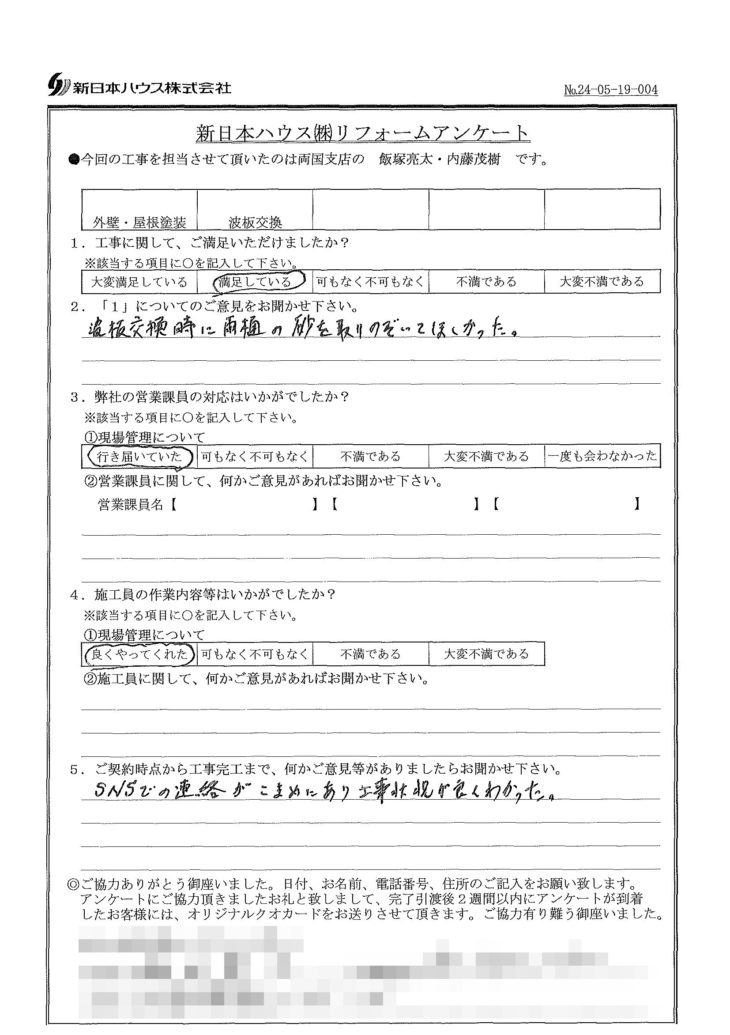 新日本ハウス株式会社
№24-05-19-004
新日本ハウス㈱リフォームアンケート
●今回の工事を担当させて頂いたのは両国支店の 飯塚亮太・内藤茂樹 です。
外壁・屋根塗装 波板交換
1．工事に関して、ご満足いただけましたか？
※該当する項目に○を記入して下さい。
大変満足している 満足している 可もなく不可もなく 不満である 大変不満である
2．「1」についてのご意見をお聞かせ下さい。
波板交換時に雨樋の砂を取りのぞいてほしかった。
3．弊社の営業課員の対応はいかがでしたか？
※該当する項目に○を記入して下さい。
①現場管理について
行き届いていた 可もなく不可もなく 不満である 大変不満である 一度も会わなかった
②営業課員に関して、何かご意見があればお聞かせ下さい。
営業課員名【 】【 】【 】
4．施工員の作業内容等はいかがでしたか？
※該当する項目に○を記入して下さい。
①現場管理について
良くやってくれた 可もなく不可もなく 不満である 大変不満である
②施工員に関して、何かご意見があればお聞かせ下さい。
5．ご契約時点から工事完工まで、何かご意見等がありましたらお聞かせ下さい。
SNSでの連絡がこまめにあり工事状況が良くわかった。
◎ご協力ありがとう御座いました。日付、お名前、電話番号、住所のご記入をお願い致します。
アンケートにご協力頂きましたお礼と致しまして、完了引渡後２週間以内にアンケートが到着
したお客様には、オリジナルクオカードをお送りさせて頂きます。ご協力有り難う御座いました。